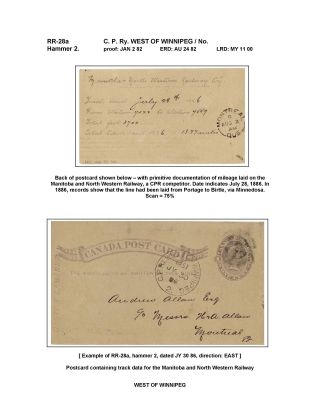 RR-28a C. P. Ry. WEST OF WINNIPEG / No.
Hammer 2. proof: JAN 2 82 ERD: AU 24 82 LRD: MY 11 00
Manitoba North Western Railway Coy
July 28th
MONTREAL
QUE
Back of postcard shown below – with primitive documentation of mileage laid on the
Manitoba and North Western Railway, a CPR competitor. Date indicates July 28, 1886. In
1886, records show that the line had been laid from Portage to Birtle, via Minnedosa.
Scan = 75%
CANADA POST CARD
Andrew Allan Esq
c/o Messrs H & A Allan
Montreal
[ Example of RR-28a, hammer 2, dated JY 30 86, direction: EAST ]
Postcard containing track data for the Manitoba and North Western Railway
WEST OF WINNIPEG